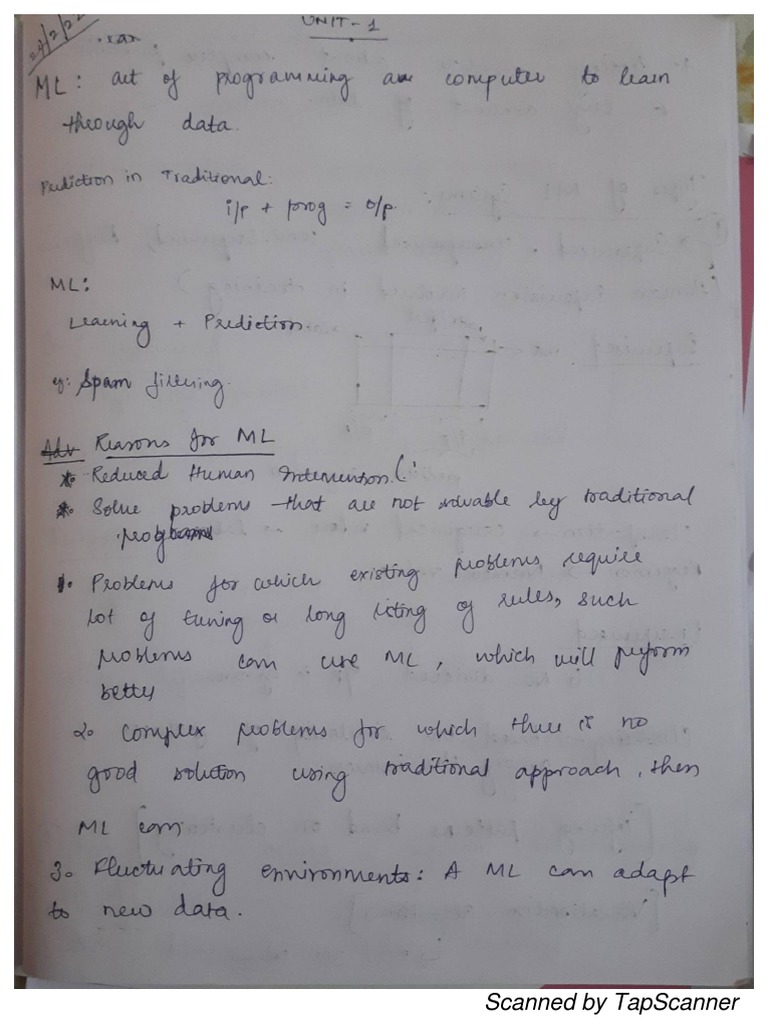 UNIT - 1
24/2/22
ML: act of programming a computer to learn
through data.
Prediction in Traditional:
i/p + prog = o/p.
ML:
Learning + Prediction.
eg: Spam filtering.
Adv Reasons for ML
* Reduced Human Intervention (
* Solve problems that are not solvable by traditional
programs
1. Problems for which existing problems require
lot of tuning or long listing of rules, such
problems can use ML, which will perform
better
2. Complex problems for which there is no
good solution using traditional approach, then
ML can
3. Fluctuating environments: A ML can adapt
to new data.
Scanned by TapScanner